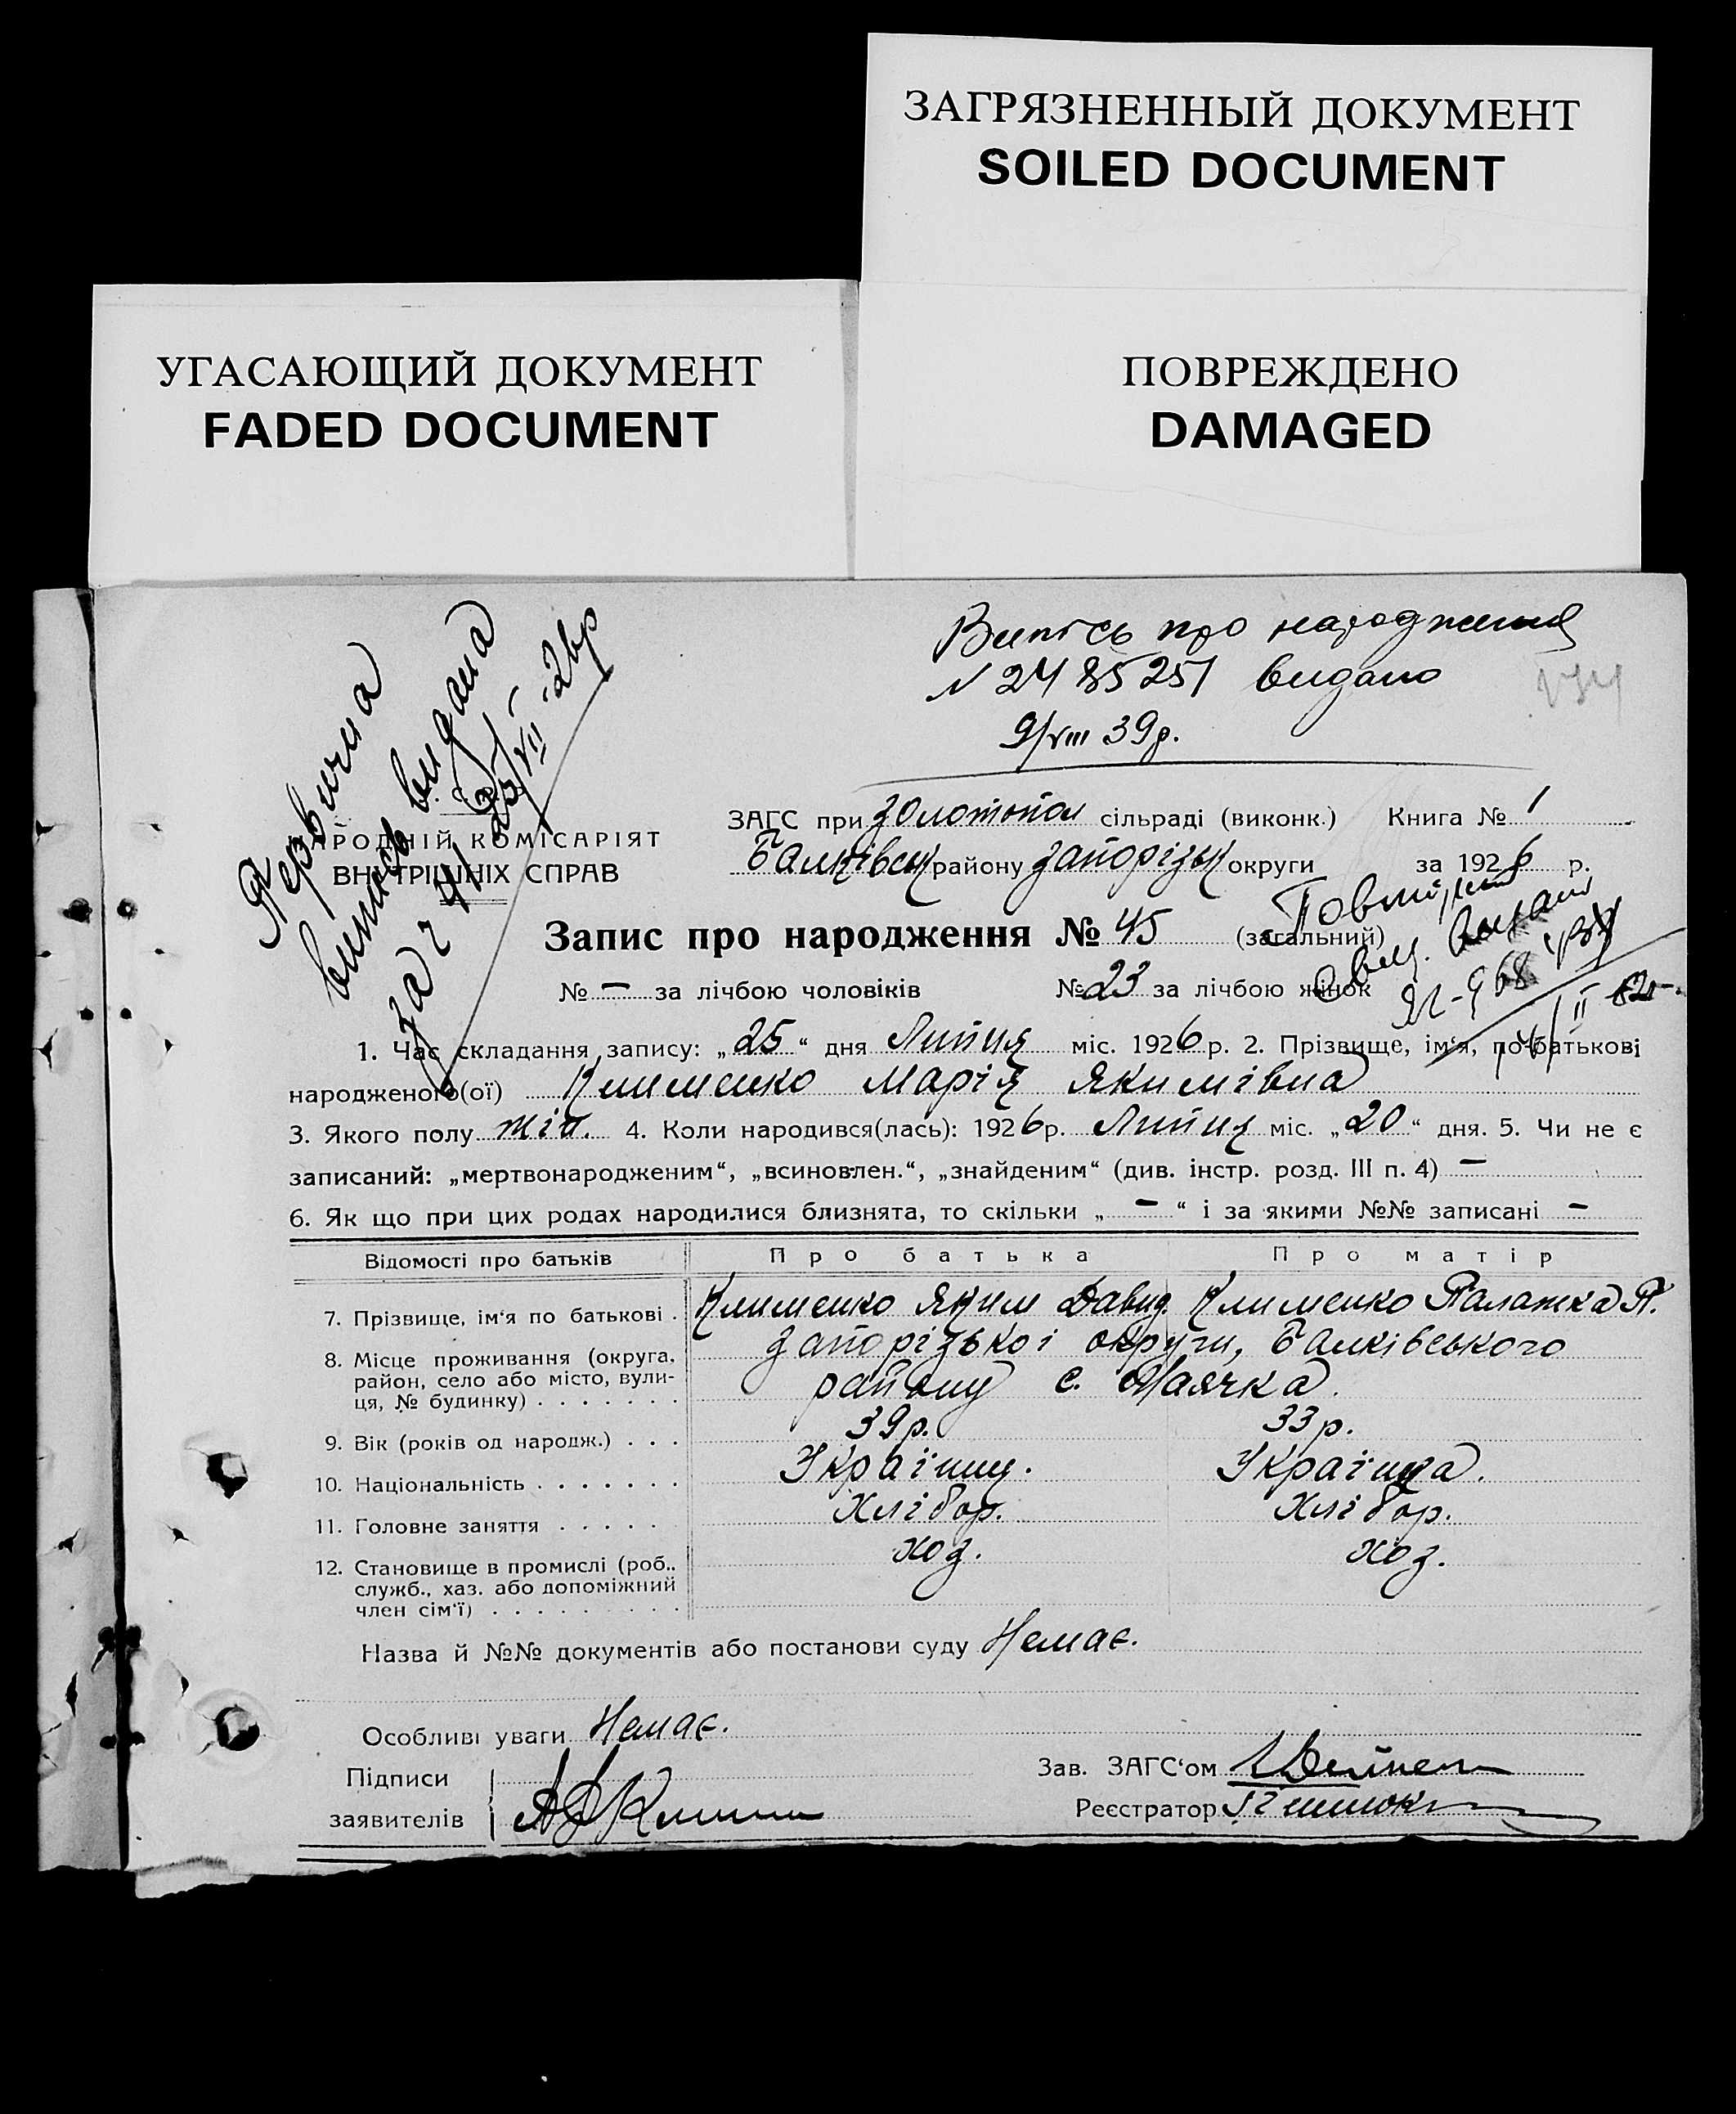 ЗАГРЯЗНЕННЫЙ ДОКУМЕНТ
SOILED DOCUMENT
УГАСАЮЩИЙ ДОКУМЕНТ
FADED DOCUMENT
ПОВРЕЖДЕНО
DAMAGED
Випісь про народження
N 2485251 видано
9/VIII 39р.
Первична
випись видана
за г 41 25/VII-26р
РОДНІЙ КОМІСАРІЯТ
ВНУТРІШНІХ СПРАВ
ЗАГС при Золотопол сільраді (виконк.) Книга № 1
Балківськ району Запорізьк округи за 1926 р.
Запис про народження № 45 (загальний)
Повторне
свид. видано
№ — за лічбою чоловіків № 23 за лічбою жінок
1. Час складання запису: „25“ дня Липня міс. 1926 р. 2. Прізвище, ім‘я, по батькові
народженого(ої) Клименко Марія Якимівна
3. Якого полу жін. 4. Коли народився(лась): 1926р. Липня міс. „20“ дня. 5. Чи не є
записаний: „мертвонародженим“, „всиновлен.“, „знайденим“ (див. інстр. розд. III п. 4) —
6. Як що при цих родах народилися близнята, то скільки „ — “ і за якими №№ записані —
Відомості про батьків Про батька Про матір
7. Прізвище, ім‘я по батькові . Клименко Яким Давид. Клименко Палажка П.
8. Місце проживання (округа, район, село або місто, вули-ця, № будинку) . . . . . . . Запорізької округи, Балківського
району с. Маячка.
9. Вік (років од народж.) . . . 39р. 33р.
10. Національність . . . . . . . Українц. Українка.
11. Головне заняття . . . . . Хлібор. Хлібор.
12. Становище в промислі (роб., служб., хаз. або допоміжний член сім‘ї) . . . . . . . . . хоз. хоз.
Назва й №№ документів або постанови суду Немає.
Особливі уваги Немає.
Підписи
заявителів
Зав. ЗАГС‘ом
Реєстратор